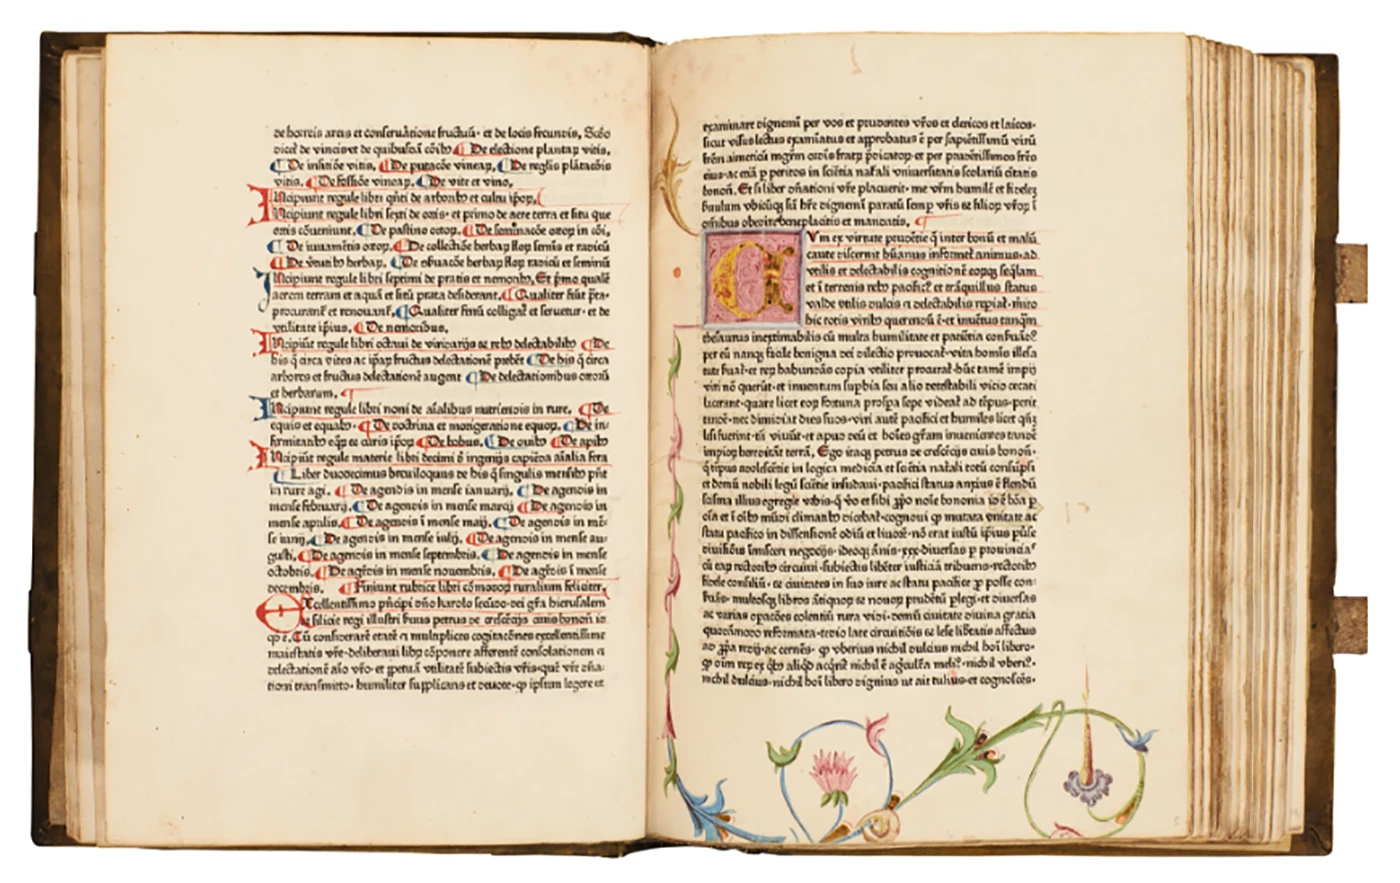 de horreis areis et conseruatione fructuū· et de locis fecundis, Scđo
dicet de vineis et de quibusdā cōibꝫ De electione plantaꝝ vitis,
De insitiōe vitis, De putacōe vineaꝝ, De reglis plātacōis
vitis, De fossiōe vineaꝝ, De vite et vino,
Incipiunt regule libri qn̄ti de arboribꝫ et cultu ip̄oꝝ,
Incipiunt regule libri sexti de ortis· et primo de aere terra et situ que
ortis cōueniunt, De pastino ortoꝝ, De seminacōe ortoꝝ in cōi,
De iuuamētis ortoꝝ, De collectiōe herbaꝝ floꝝ semīs et radicū
De ꝟtutibꝫ herbaꝝ, De
Incipiunt regule libri septimi de pratis et nemoribꝫ, Et p̄mo qualē
aerem terram et aquā et sitū prata desiderant, Qualiter fiūt p̄ta·
procurant᷑ et renouant᷑, Qualiter fenū colligat᷑ et seruetur· et de
vtilitate ip̄ius, De nemoribus,
Incipiūt regule libri octaui de viridarijs et rebꝫ delectabilibꝫ De
his q̄ circa vites ac ip̄aꝝ fructus delectationē prebēt De his q̄ circa
arbores et fructus delectationē augent De delectationibus ortorū
et herbarum,
Incipiunt regule libri noni de aīalibus nutriendis in rure, De
equis et equabꝫ· De doctrina et morigeratione equoꝝ, De in·
firmitatibꝫ eqoꝝ et curis ip̄oꝝ De bobus, De ouibꝫ De apibꝫ
Incipiūt regule materie libri decimi đ ingenijs capiēda aīalia fera
Liber duodecimus breuiloquus de his q̄ singulis mensibꝫ sūt
in rure agē, De agendis in mense ianuarij, De agendis in
mense februarij, De agendis in mense marcij De agendis in
mense aprilis, De agendis ī mense maij, De agendis in mē·
se iunij, De agendis in mense iulij, De agendis in mense au·
gusti, De agendis in mense septembris, De agendis in mense
octobris, De agēdis in mense nouembris, De agēdis ī mense
decembris, Finiunt rubrice libri cōmodoꝝ ruralium feliciter,
Excellentissimo pn̄cipi dn̄o karolo secūdo· dei gr̄a hierusalem
et sicilie regi illustri suus petrus de crescēcijs ciuis bononī
Cū considerarē etatē et multiplices cogitacōnes excellentissime
maiestatis vr̄e· deliberaui libꝝ cōponere afferentē consolationem et
delectationē aīo vr̄o· et ꝑpetuā vtilitatē subiectis vr̄is· quē vr̄e dn̄a·
tioni transmitto· humiliter supplicans et deuote· ꝙ ipsum legere et
examinare dignemī per vos et prudentes vr̄os et clericos et laicos·
sicut visus lectus examīatus et approbatus ē per sapiētissimū virū
frēm aimericū mgr̄m ordīs fratꝝ p̄dicatoꝝ· et per prudētissimos frēs
eius· ac etiā ꝑ peritos in sciētia nat᷑ali vniuersitatis scolariū ciuitatis
bonoñ, Et si liber dn̄ationi vr̄e placuerit· me vr̄m humilē et fidelē
famulum vbicūqꝫ sū hr̄e dignemini paratū semꝑ vr̄is et filioꝝ vr̄oꝝ ī
omībus obedire beneplacitis et mandatis,
Cvm ex virtute prudētie q̄ inter bonū et malū
caute discernit hūanus informet᷑ animus· ad
vtilis et delectabilis cognitionē eoꝝqꝫ
et ī terrenis rebꝫ pacific᷒ et trāquillus status
valde vtilis dulcis et delectabilis repiat᷑· mīto
hic totis viribꝫ querendū ē· et inuētus tanq̄m
thesaurus inextimabilis cū multa humilitate et paciētia conseruādꝰ
per eū nanqꝫ facile benigna dei dilectio prouocat᷑· vita homīs illesa
tute seruat᷑· et reꝝ habundās copia vtiliter procurat᷑· hūc tamē impij
viri nō querūt· et inuentum suꝑbia seu alio detestabili vicio cecati
lacerant· quare licet eoꝝ fortuna prosꝑa sepe videat᷑ ad tēpus· perit
tandē· nec dimidiāt dies suos· viri autē pacifici et humiles licet qn̄qꝫ
lesi fuerint· tn̄ viuūt· et apud deū et hoīes gr̄am inuenientes tandē
impioꝝ hereditāt terrā, Ego itaqꝫ petrus de crescēcijs ciuis bonoñ·
q̄ tēpus adolescētie in logica medicia et sciētia nat᷑ali totū consūpsi
et demū nobili legū sciētie insudaui· pacifici status anxius
statu pacifico in dissensionē odiū et liuorē· nō erat iustū
diuisiōis immisceri negocijs· ideoqꝫ ānis ·xxx· diuersas ꝑ prouincias
cū eaꝝ rectoribꝫ circuiui· subiectis libēter iusticiā tribuens· rectoribꝫ
fidele consiliū· et ciuitates in suo iure ac statu pacifice ꝓ posse con·
seruās· multosqꝫ libros ātiquoꝝ et nouoꝝ prudētū ꝑlegi· et diuersas
ac varias oꝑacōes colentiū rura vidi· demū ciuitate diuina gratia
quodāmodo reformata· tedio late circuitiōis et lese libertatis affectus
ad ꝓp̄a redij· ac cernēs· ꝙ vberius nichil dulcius nichil hoī libero·
ꝙ oīm reꝝ ex qͥbꝫ aliqͥd acqͥrit᷑ nichil ē agͥcult᷑a melꝰ· nichil vberiꝰ·
nichil dulcius· nichil hoī libero dignius ut ait tulius· et cognoscēs·